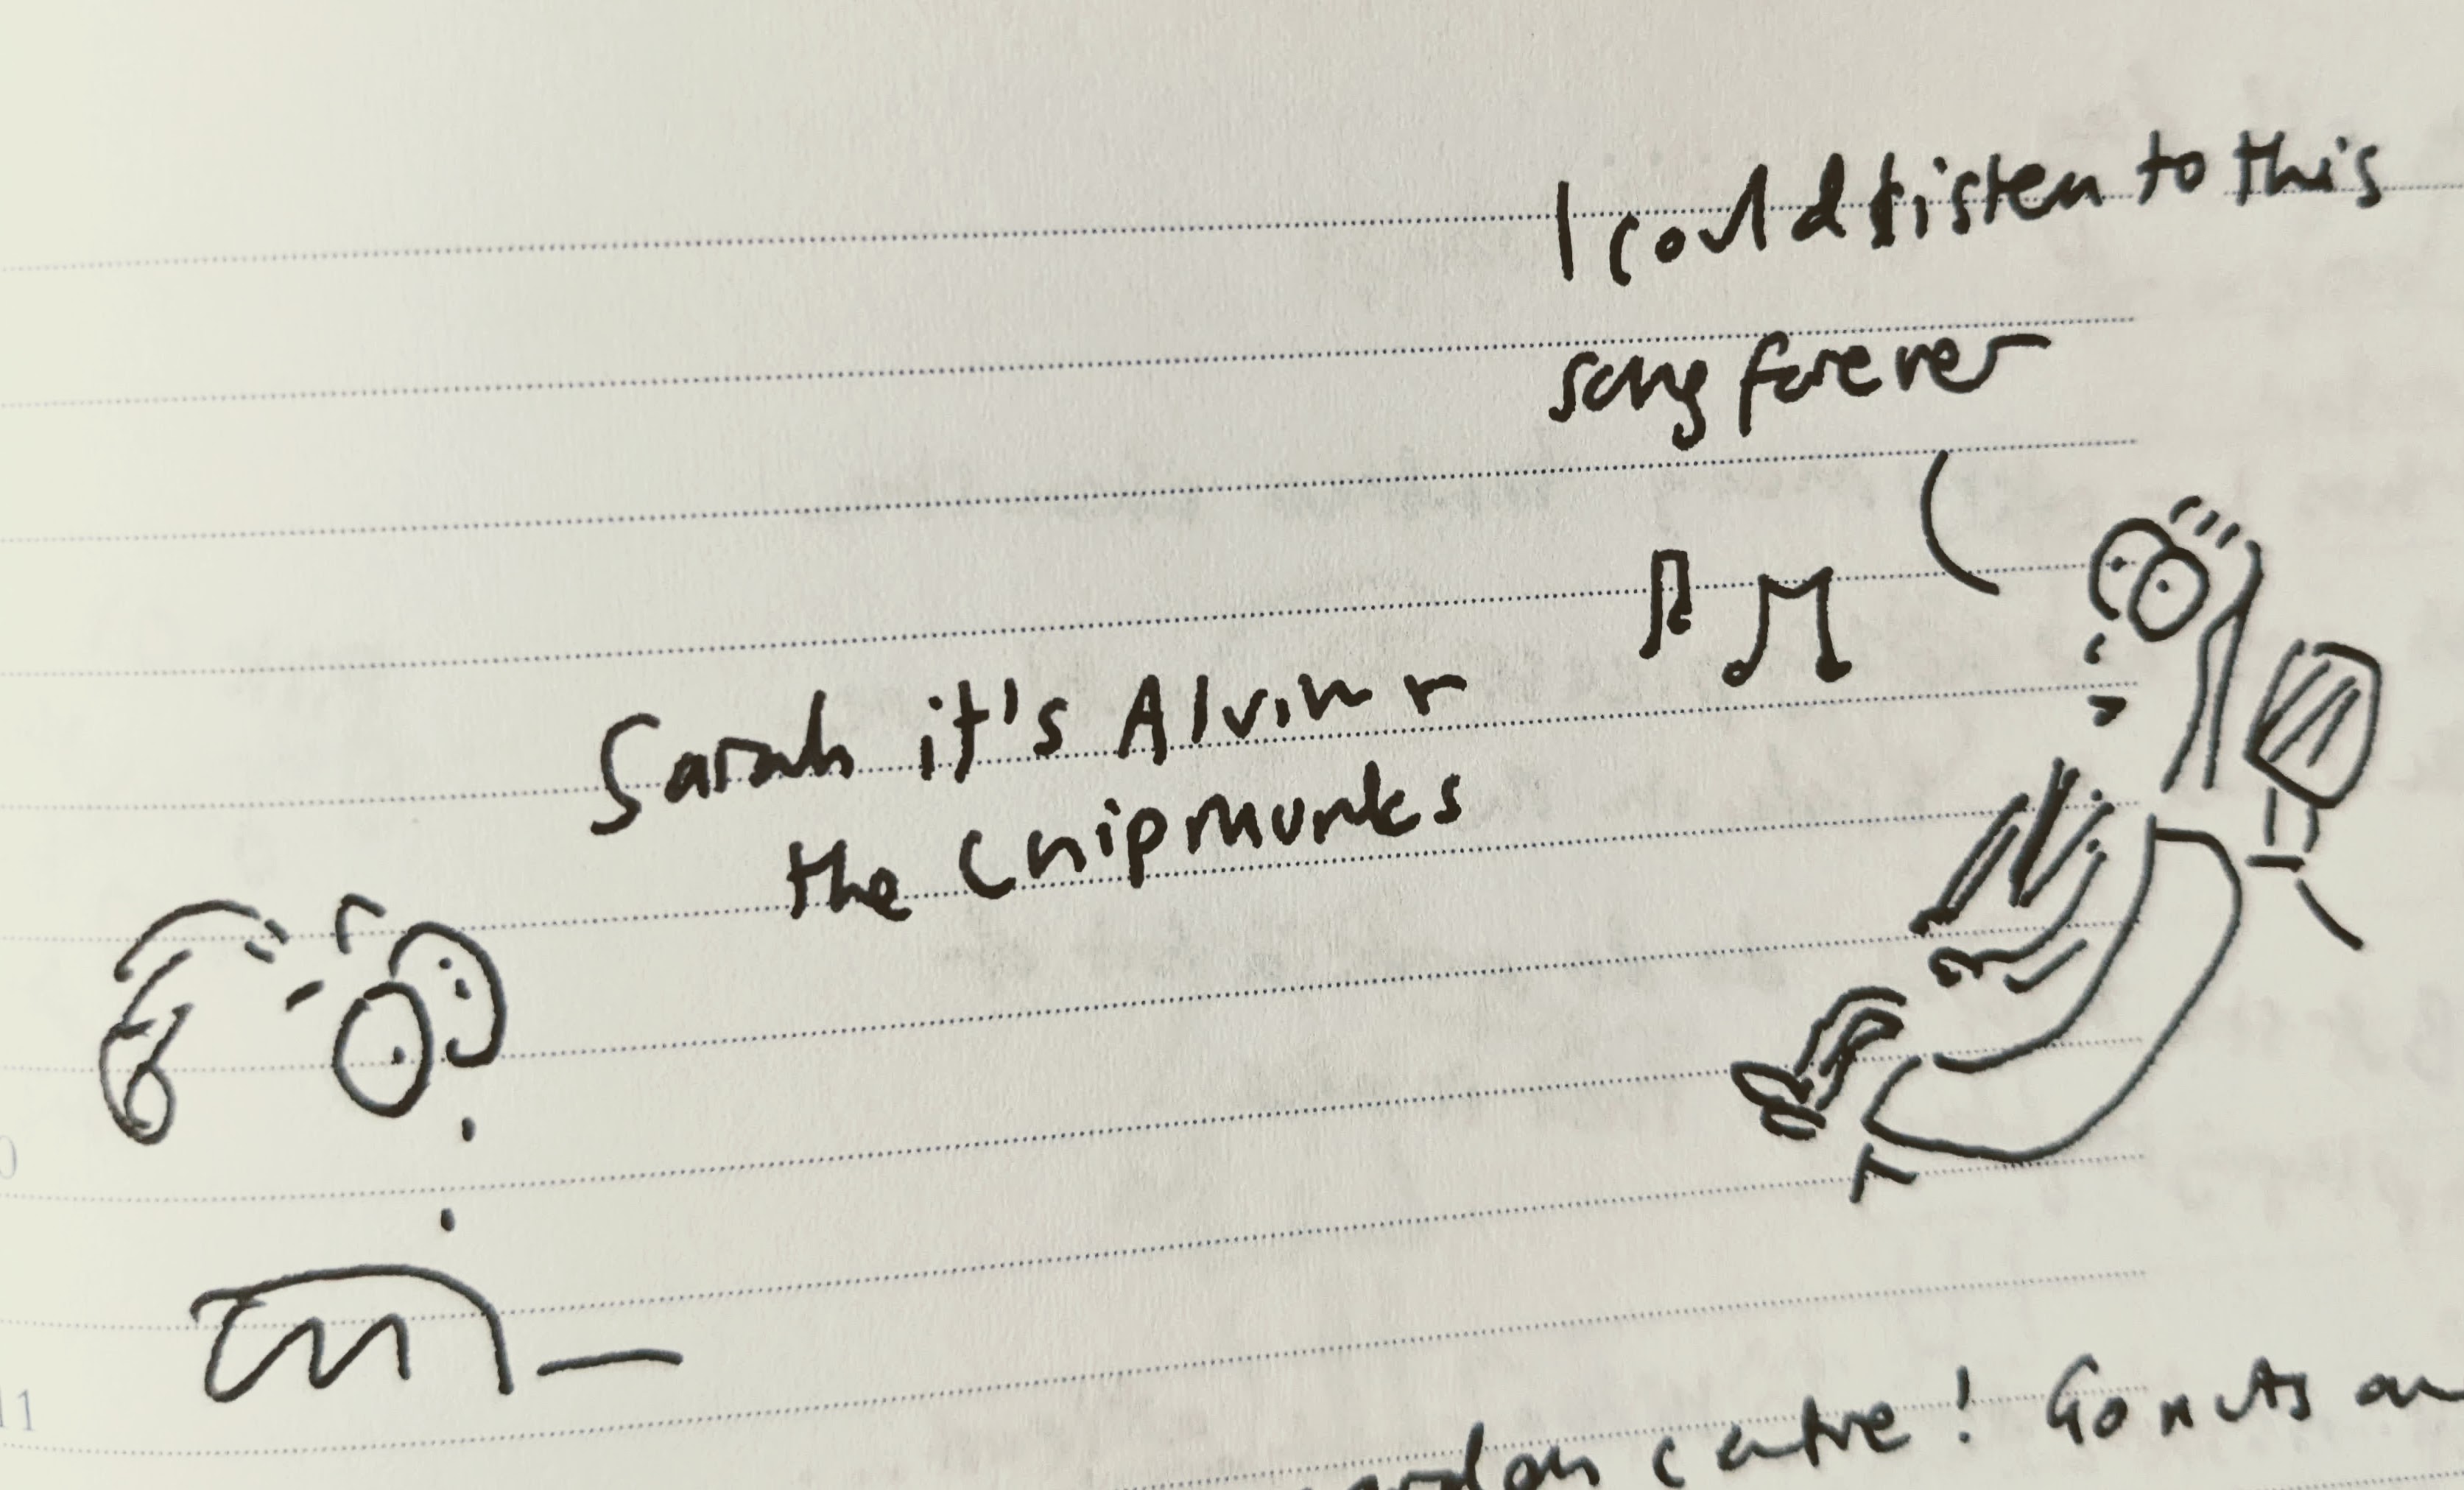 I could listen to this
song forever
Sarah it's Alvin +
the Chipmunks
11
centre! Go nuts on